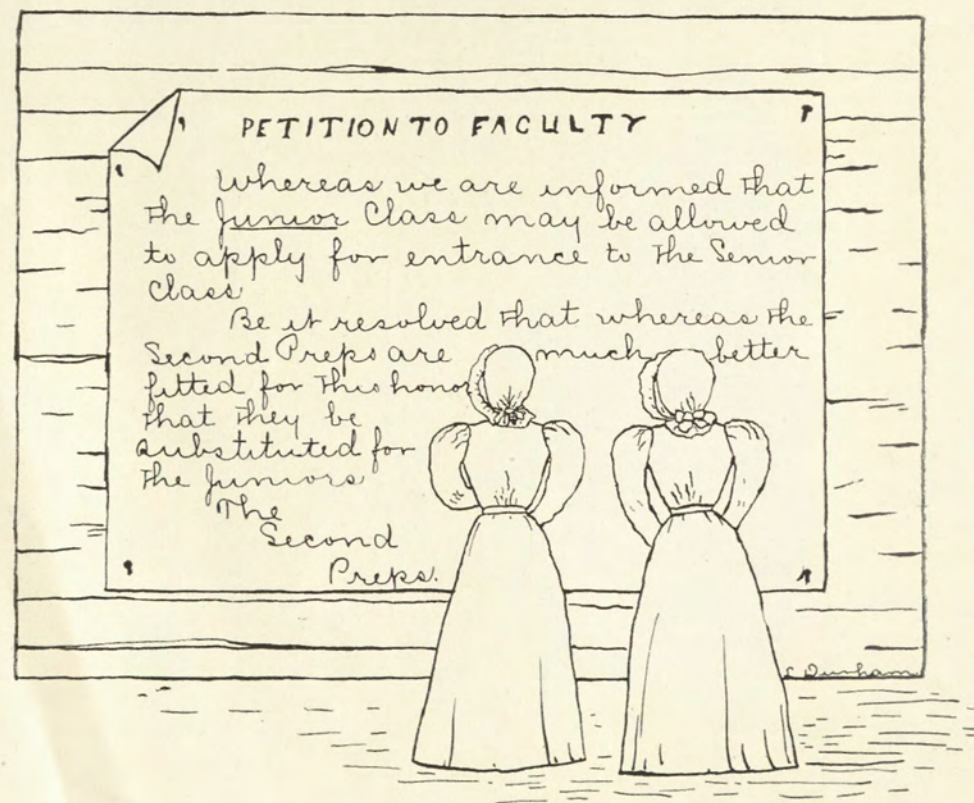 PETITION TO FACULTY
Whereas we are informed that
the Junior Class may be allowed
to apply for entrance to the Senior
Class
Be it resolved that whereas the
Second Preps are much better
fitted for this honor
that they be
substituted for
the Juniors
The
Second
Preps.
C Durham